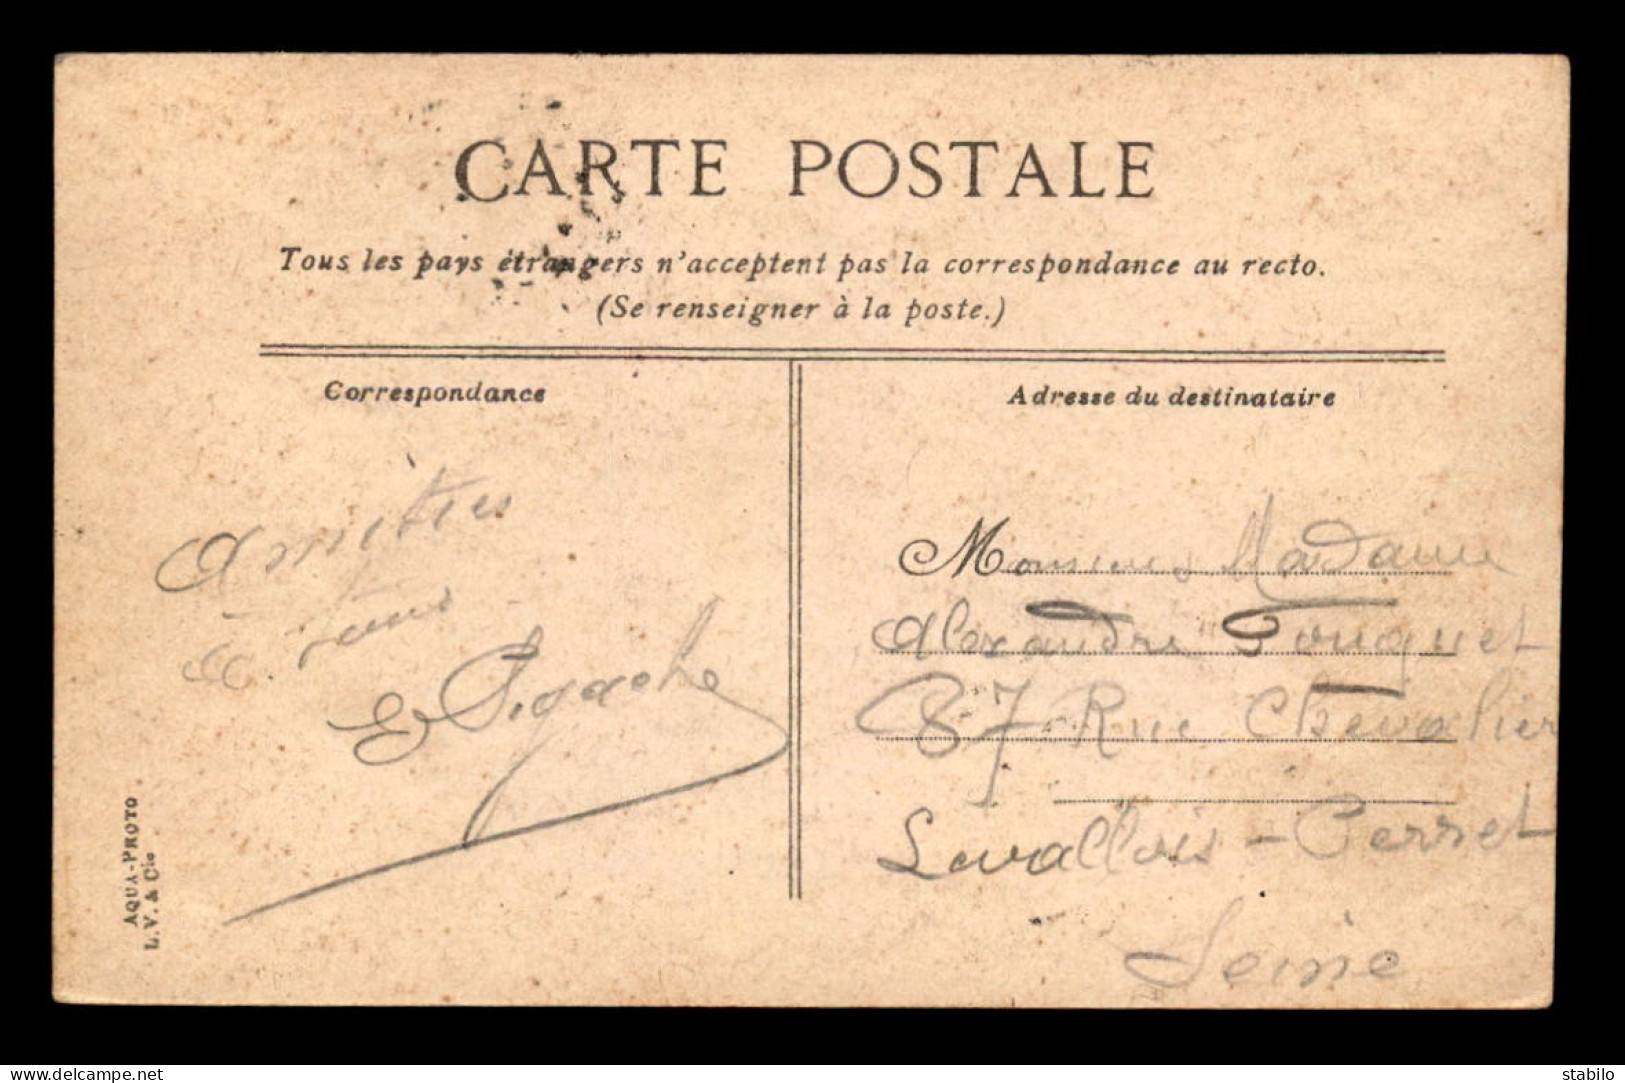 CARTE POSTALE
Tous les pays étrangers n'acceptent pas la correspondance au recto.
(Se renseigner à la poste.)
Correspondance
Adresse du destinataire
Amitiés
à tous
E Pigache
Monsieur & Madame
Alexandre Fouquet
87 Rue Chevalier
Levallois-Perret
Seine
AQUA-PHOTO
L. V. & Cie
www.delcampe.net
stabilo